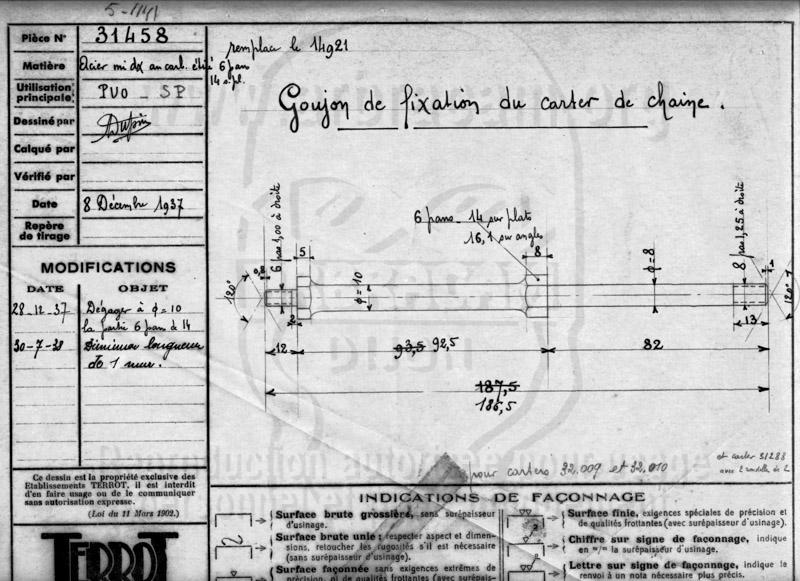 5-1141
Pièce N° 31458
remplace le 14921
Matière Acier mi dx au carb. étiré 6 pans
14 s. pl.
Utilisation principale PVO - SP
Goujon de fixation du carter de chaine.
Dessiné par
Calqué par
Vérifié par
Date 8 Décembre 1937
Repère
de tirage
MODIFICATIONS
DATE OBJET
28-12-37 Dégager à φ=10
la partie 6 pans de 14
30-7-38 Diminuer longueur
de 1 mm.
6 pans 14 sur plats
16,1 sur angles
120°
0,8
6 pas 1,00 à droite
5
φ=10
8
φ=8
8 pas 1,25 à droite
1
120°
2
13
12
93,5 92,5
82
187,5
186,5
pour carters 32,009 et 32,010
et carter 31288
avec 2 rondelles de 2
Ce dessin est la propriété exclusive des
Etablissements TERROT, il est interdit
d'en faire usage ou de le communiquer
sans autorisation expresse.
(Loi du 11 Mars 1902.)
TERROT
INDICATIONS DE FAÇONNAGE
Surface brute grossière, sans surépaisseur
d'usinage.
Surface brute unie : respecter aspect et dimen-
sions, retoucher les rugosités s'il est nécessaire
(sans surépaisseur d'usinage).
Surface façonnée sans exigences extrêmes de
précision, ni de qualités frottantes (avec surépais-
Surface finie, exigences spéciales de précision et
de qualités frottantes (avec surépaisseur d'usinage).
2
Chiffre sur signe de façonnage, indique
en m/m la surépaisseur d'usinage.
Lettre sur signe de façonnage, indique le
renvoi à un nota nécessaire plus précis.
Reproduction autorisée pour usage